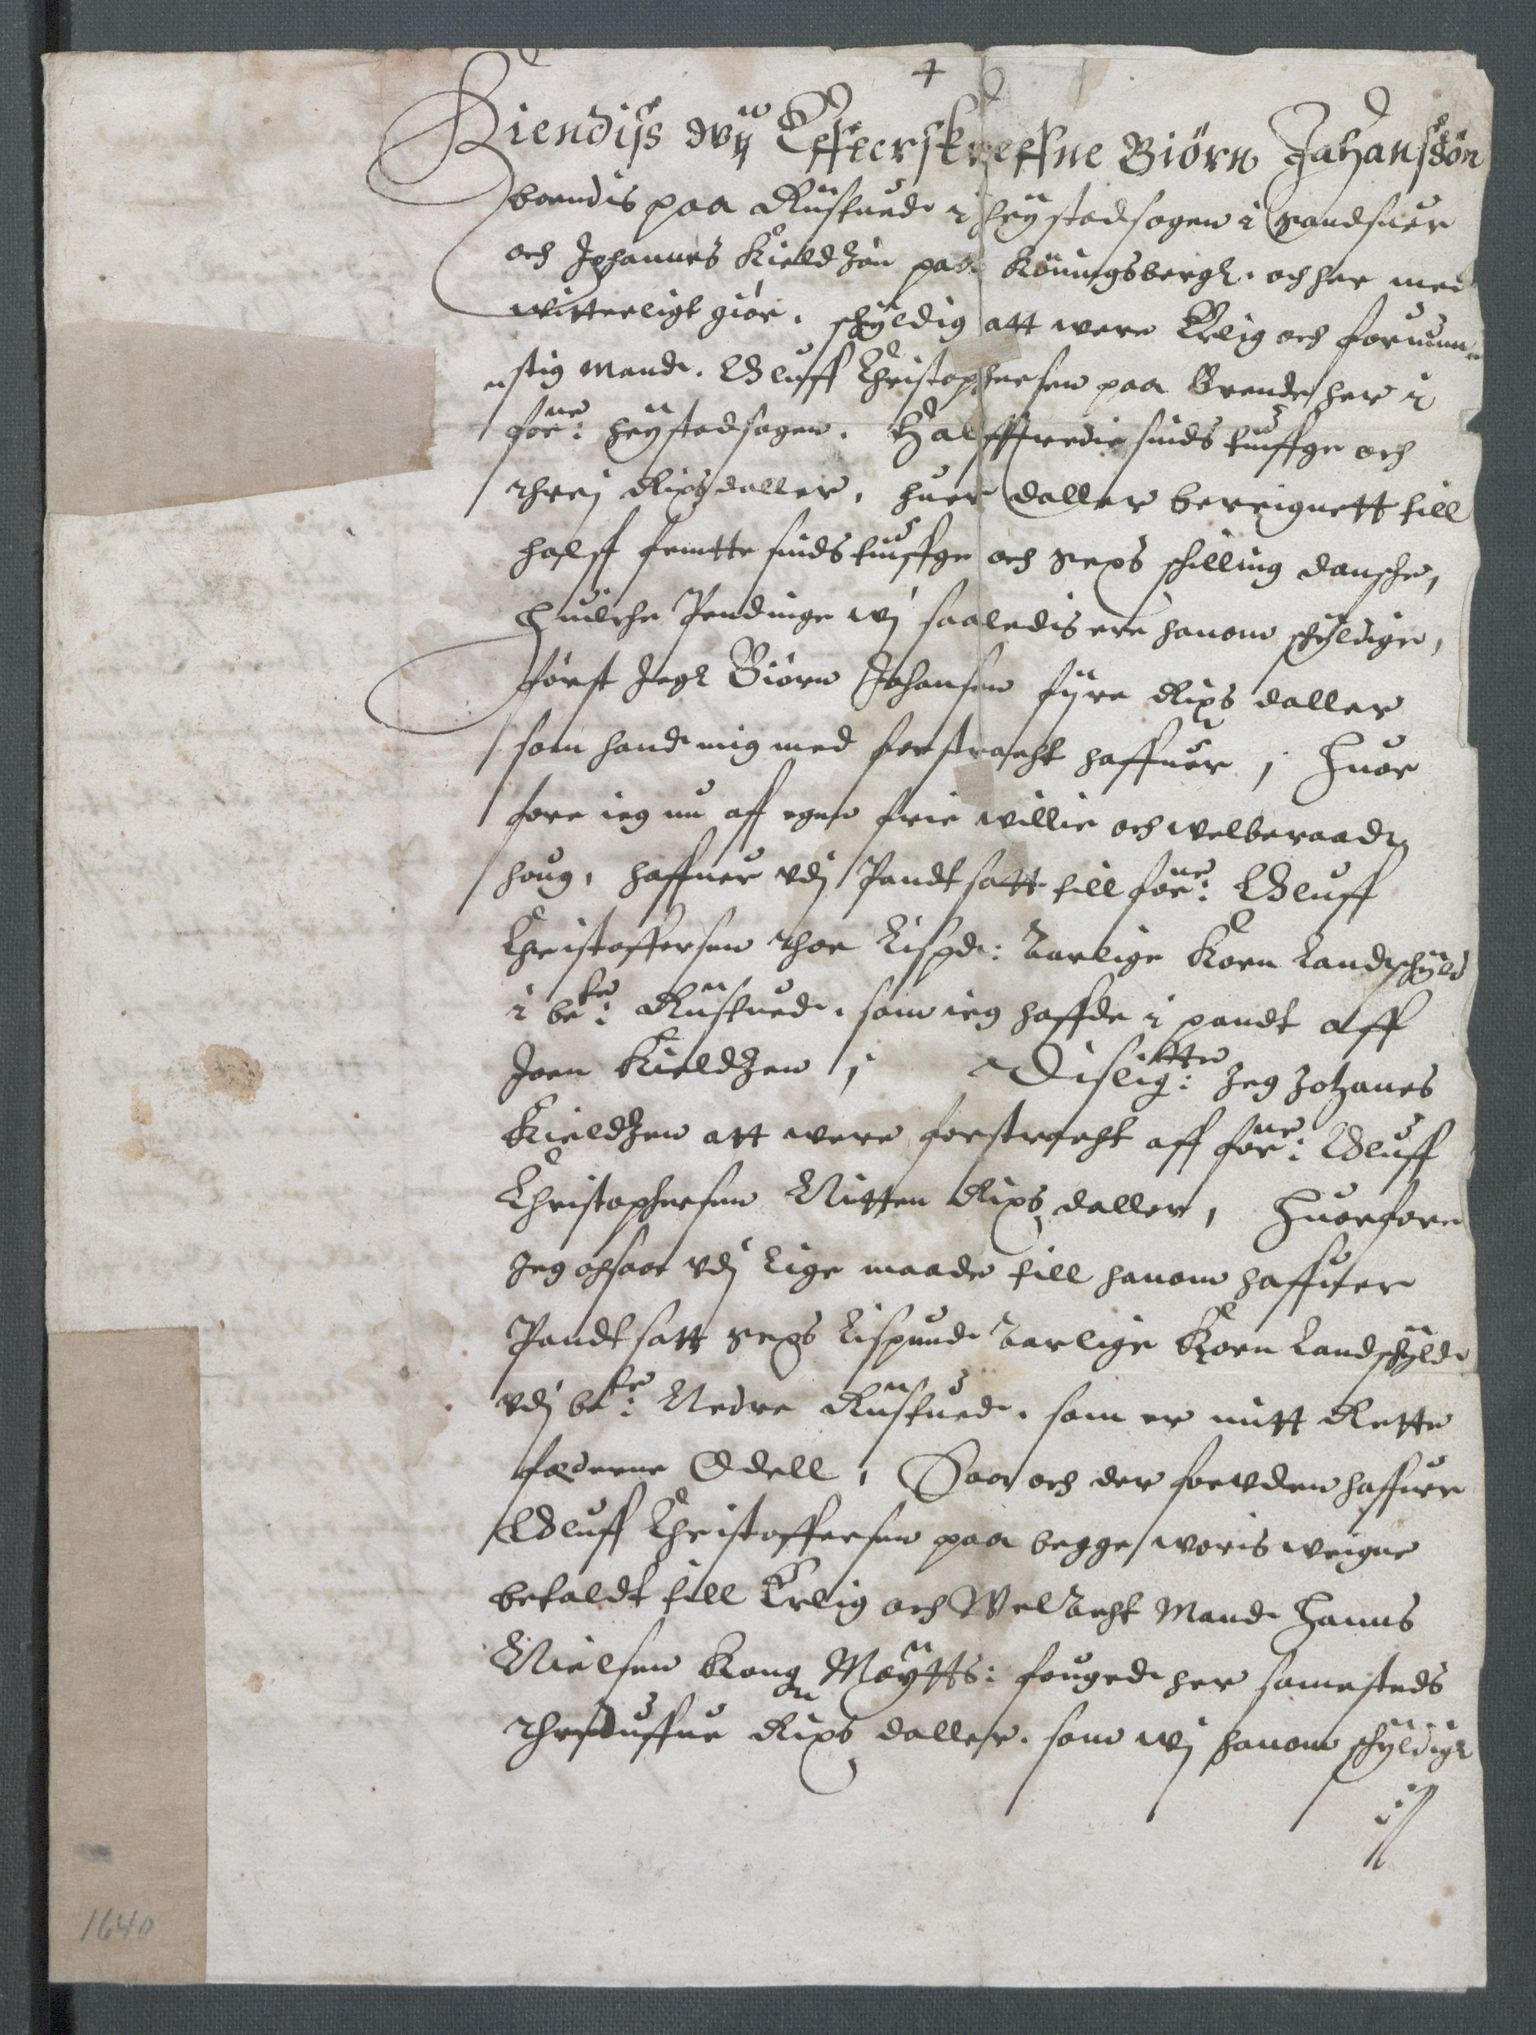 +
Kiendis wij Effterskreffne Biörn Johanssön
boendis paa Rustued i heystadsogen i Sandsuer
och Johannes Kieldzön paa Konningsbergh. och her med
witterligt giör. schyldig att were Erlig och fornum-
stig mand. Oluff Christophersen paa Brende her i
forne: heystadsogen. Halfftredie sinds tiuffge och
threj Rixdaller, huer daller bereignett till
halff femtte sinds tiuffge och sexs schilling dansche,
Huilche Pendinge wj saaledis ere hanom schyldige,
först Jegh Biörn Johansen fÿre Rixs daller
som hand mig med forstracht haffuer, Huor
fore ieg nu aff egen frie willie och welberaad
houg, haffuer vdj Pandt satt till forne: Oluff
Christoffersen thoe Lispd: Aarlige Korn Landschyld
i bete: Rustued. som ieg haffde i pandt aff
Joen Kieldzen, Disligtte: Jeg Johanes
Kieldzen att were forstracht aff forne: Oluff
Christophersen Nitten Rixs daller, Huorfore
Jeg ochsaa vdj Lige maade till hanom haffuer
Pandtsatt sexs Lispund Aarlige Korn Landschyld
vdj bete: Nedre Rustued. som er mitt Rette
fæderne Odell, Saa och der foruden haffuer
Oluff Christoffersen paa begge woris weigne
betaldt till Erlig och Welacht Mand Hanns
Nielsen Kong Maytts: fouged her samesteds
thrediuffue Rixs daller. som wj hanom schyldigh
1640